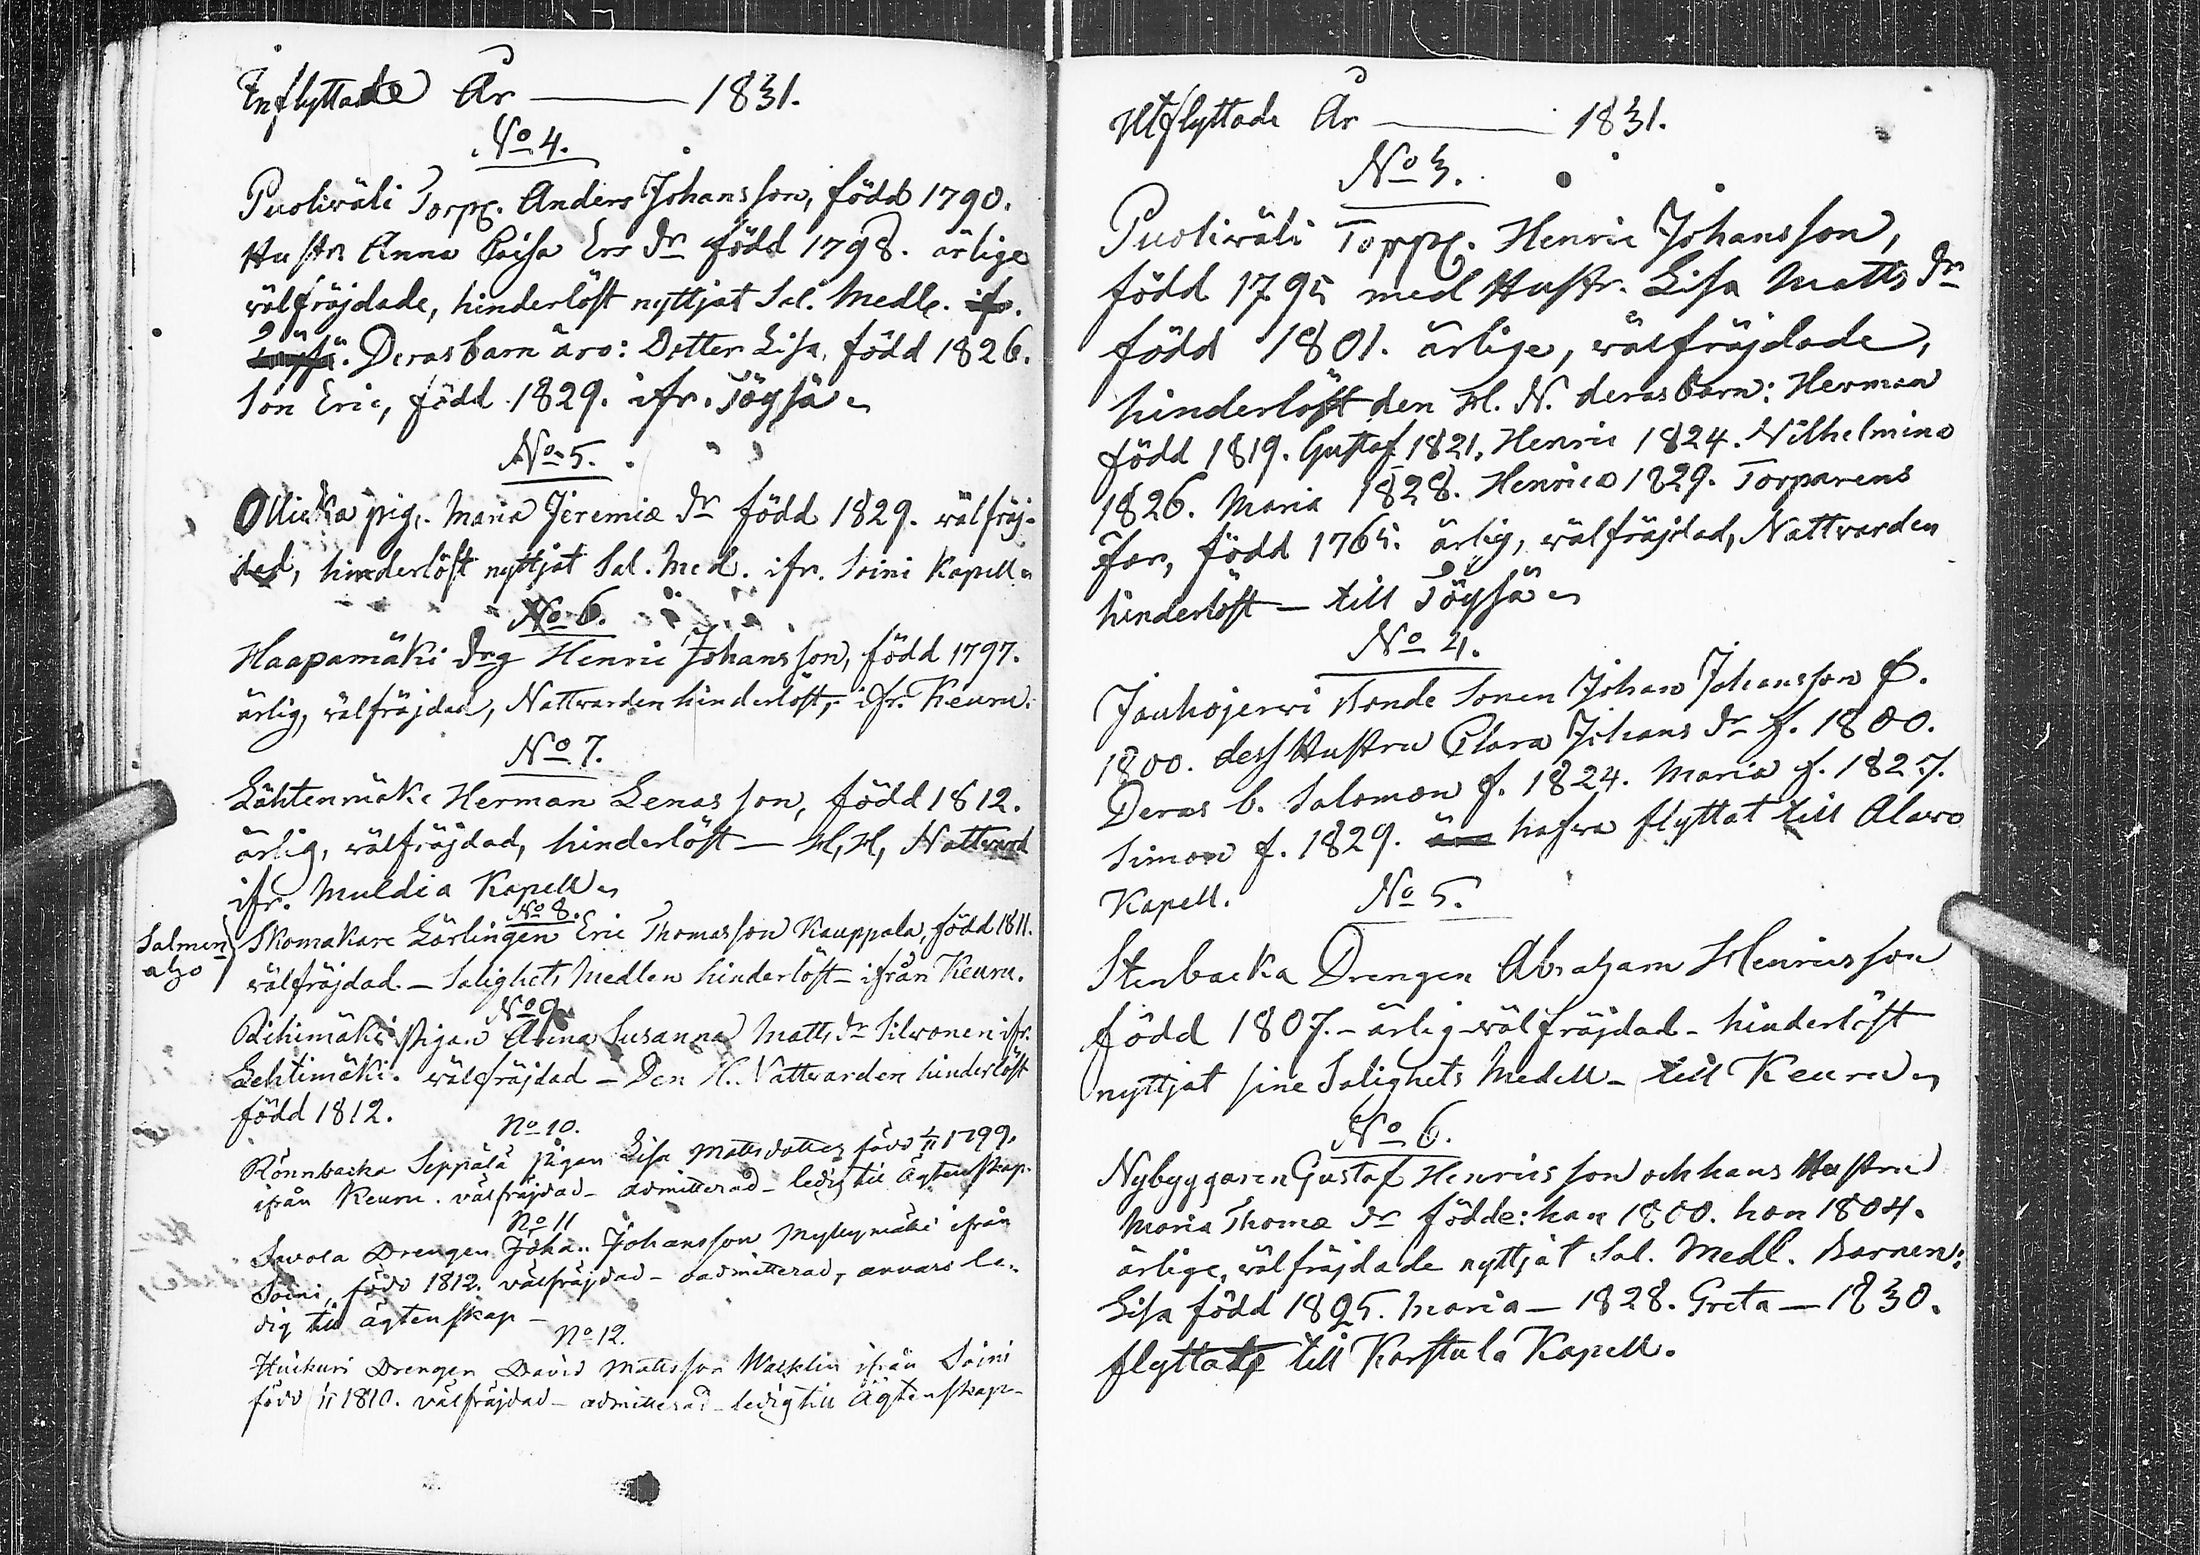 Inflyttade År — 1831.
No 4.
Puoliwäli Torp. Anders Johansson, född 1790.
Hustr. Anna Caisa Ers dr född 1798. ärlige
wälfräjdade, hinderlöst nyttjat Sal. Medle. ifr.
Deras barn äro: Dotter Lisa, född 1826.
Son Eric, född 1829. ifr. Töysä
No 5.
Ollicka pig. Maria Jeremiæ dr född 1829. wälfräj-
dad, hinderlöst nyttjat Sal. Med. ifr. Soini Kapell
No 6.
Haapamäki drg Henric Johansson, född 1797.
ärlig, wälfräjdad, Nattvarden hinderlöst, ifr. Keuru.
No 7.
Lähtenmäki Herman Lenasson, född 1812.
ärlig, wälfräjdad, hinderlöst — H, H, Nattvard
ifr. Muldia Kapell
No 8.
Salmen
aho
Skomakare Lärlingen Eric Thomasson Kauppala, född 1811.
wälfräjdad. — Salighets Medlen hinderlöst — ifrån Keuru.
No 9
Pihimäki Pigan Anna Susanna Matts dr Silvonen ifr.
Lehtimäki. wälfräjdad — Den H. Nattvarden hinderlöst
född 1812.
No 10.
Rönnbacka Seppälä pigan Lisa Mattsdotter född 1799.
ifrån Keuru. välfräjdad — admitterad — ledig till Ägtenskap.
No 11
Drengen Johan Johansson Myllymäki ifrån
Soini, född 1812. välfräjdad — oadmitterad, annars le-
dig till ägtenskap —
No 12.
Huikuri Drengen David Mattsson Wacklin ifrån Soini
född 1810. välfräjdad — admitterad — ledig till Ägtenskap —
Utflyttade År — 1831.
No 3.
Puoliwäli Torp. Henric Johansson,
född 1795 med Hustr. Lisa Matts dr
född 1801. ärlige, wälfräjdade,
hinderlöst den H. N. deras barn: Herman
född 1819. Gustaf 1821, Henric 1824. Wilhelmina
1826. Maria 1828. Henrica 1829. Torparens
Far, född 1765. ärlig, wälfräjdad, Nattvarden
hinderlöst — till Töysä
No 4.
Jauhojerwi Bonde Sonen Johan Johansson f.
1800. dess Hustru Clara Johans dr f. 1800.
Deras b. Salomon f. 1824. Maria f. 1827.
Simon f. 1829. äro hafwa flyttat till Alawo
Kapell.
No 5.
Stenbacka Drengen Abraham Henricsson
född 1807. — ärlig — wälfräjdad — hinderlöst
nyttjat sine Salighets Medell — till Keuru
No 6.
Nybyggaren Gustaf Henricsson och hans Hustru
Maria Thomæ dr födde: han 1800. hon 1804.
ärlige, wälfräjdade nyttjat Sal. Medl. Barnen:
Lisa född 1825. Maria — 1828. Greta — 1830.
flyttade till Karstula Kapell.